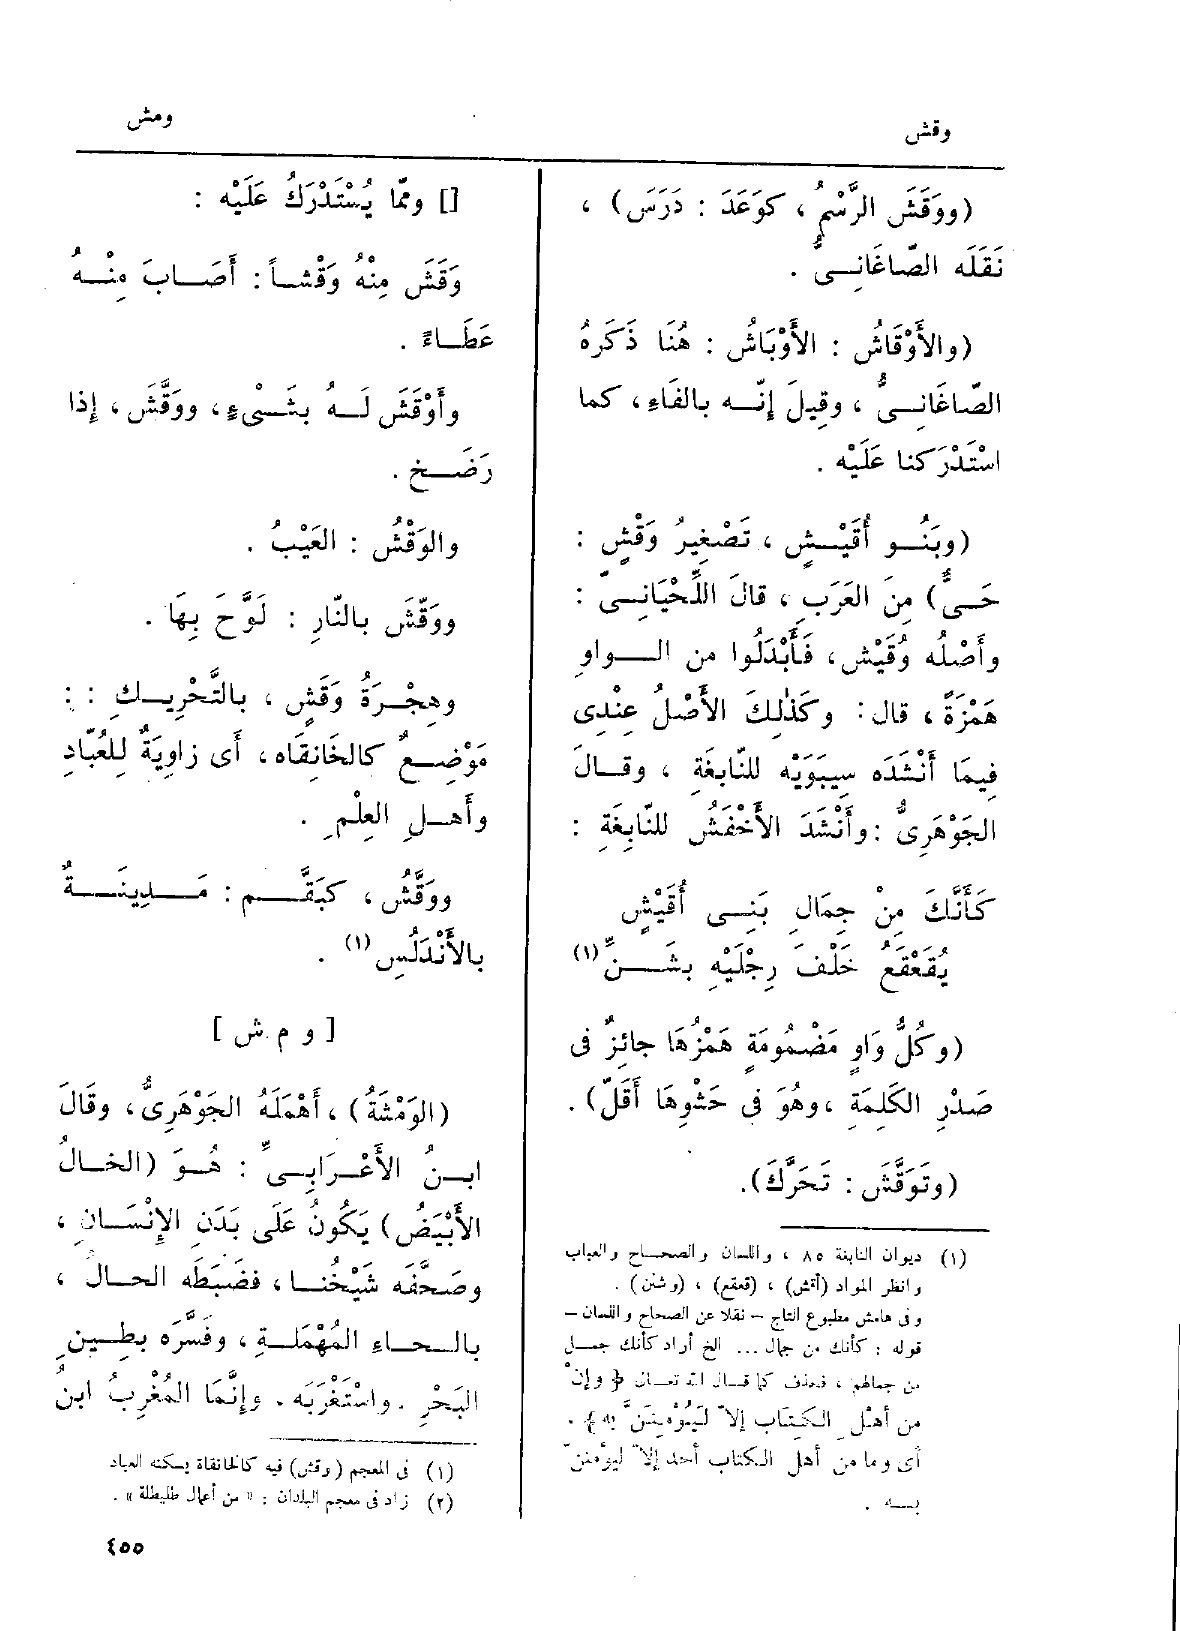 وقش
ومش
(ووَقَشَ الرَّسْمُ ، كوَعَدَ : دَرَسَ) ،
نَقَلَه الصّاغَانِــىُّ .
(والأَوْقَاشُ : الأَوْبَاشُ : هُنَا ذَكَرَهُ
الصّاغَانِــىُّ ، وقِيلَ إِنّــه بالفَاءِ ، كما
اسْتَدْرَكنا عَلَيْه .
(وبَنُــو أُقَيْــشٍ ، تَصْغِيرُ وَقْشٍ :
حَــىٌّ) مِنَ العَرَبِ ، قالَ اللِّحْيَانِــىّ :
وأَصْلُه وُقَيْش ، فَأَبْدَلُوا من الــواوِ
هَمْزَةً ، قال : وكَذٰلِكَ الأَصْلُ عِنْدِى
فِيمَا أَنْشَدَه سِيبَوَيْه للنّابِغَةِ ، وقــالَ
الجَوْهَرِىُّ : وأَنْشَدَ الأَخْفَشُ للنّابِغَةِ :
كَأَنَّكَ مِنْ جِمَالِ بَنِــى أُقَيْشٍ
يُقَعْقَعُ خَلْفَ رِجْلَيْهِ بشَــنِّ (١)
(وكُلُّ وَاوٍ مَضْمُومَةٍ هَمْزُهَا جائِزٌ فى
صَدْرِ الكَلِمَةِ ، وهُوَ فى حَشْوِهَا أَقَلّ) .
(وتَوَقَّشَ : تَحَرَّكَ).
(١) ديوان النابغة ٨٥ ، واللسان والصحــاح والعباب
وانظر المواد (أقش) ، (قعقع) ، (وشنن) .
وفى هامش مطبوع التاج – نقلا عن الصحاح واللسان –
قوله : كأنك من جمال ... الخ أراد كأنك جمــل
من جمالهم ، فحذف كما قــال الله تعــالى ﴿ وإنْ
من أهْلِ الكِتَابِ إلاّ لَيُؤْمِنَنَّ به ﴾ .
أى وما من أهل الكتاب أحد إلاّ ليؤمننّ
بــه .
[] وممّا يُسْتَدْرَكُ عَلَيْه :
وَقَشَ مِنْهُ وَقْشــاً : أَصَــابَ مِنْــهُ
عَطَــاءً .
وأَوْقَشَ لَــهُ بشَــىْءٍ ، ووَقَّشَ ، إِذا
رَضَــخ .
والوَقْشُ : العَيْبُ .
ووَقّشَ بالنّارِ : لَوَّحَ بِهَا .
وهِجْــرَةُ وَقَشٍ ، بالتَّحْرِيــكِ : :
مَوْضِــعٌ كالخَانِقَاه ، أَى زاوِيَةٌ لِلعُبّادِ
وأَهــلِ العِلْمِ .
ووَقَّشُ ، كبَقَّــم : مَــدِينَــةٌ
بالأَنْدَلُسِ (١) .
[ و م ش ]
(الوَمْشَةُ) ، أَهْمَلَهُ الجَوْهَرِىُّ ، وقَالَ
ابــنُ الأَعْــرَابِــىِّ : هُــوَ (الخَــالُ
الأَبْيَضُ) يَكُونُ عَلَى بَدَنِ الإِنْسَــانِ ،
وصَحَّفَه شَيْخُنــا ، فضَبَطَه الحــالُ ،
بالــحــاءِ المُهْمَلــةِ ، وفَسَّرَه بطِــينِ
البَحْرِ . واسْتَغْرَبَه . وإِنَّمَا المُغْرِبُ ابنُ
(١) فى المعجم (وقش) فيه كالخانقاة يسكنه العباد
(٢) زاد فى معجم البلدان : « من أعمال طليطلة » .
٤٥٥